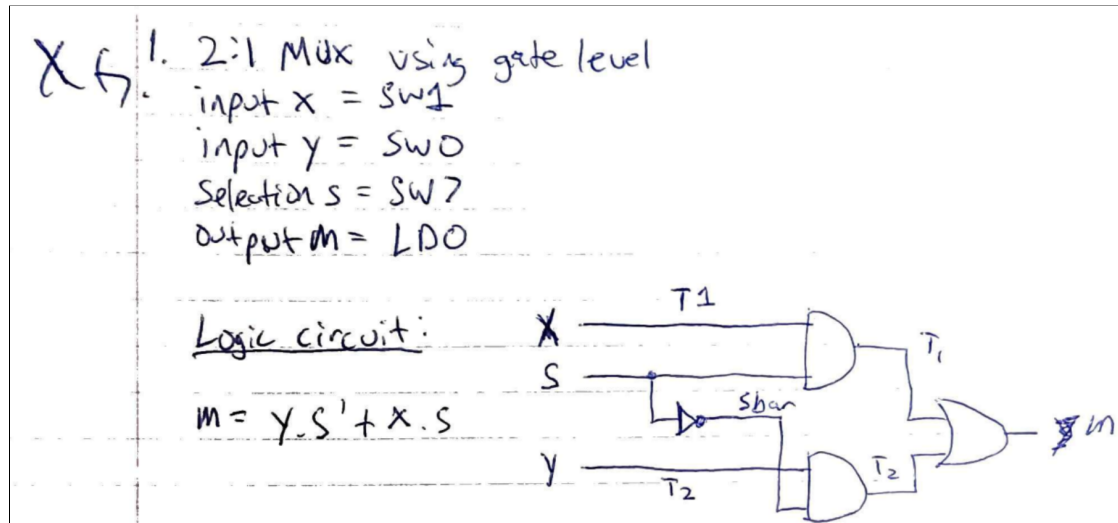 1. 2:1 MUX using gate level
input x = SW1
input y = SW0
Selection s = SW7
output m = LD0
Logic circuit:
m = y.s' + x.s
T1
X
S
sbar
Y
T2
T1
T2
m